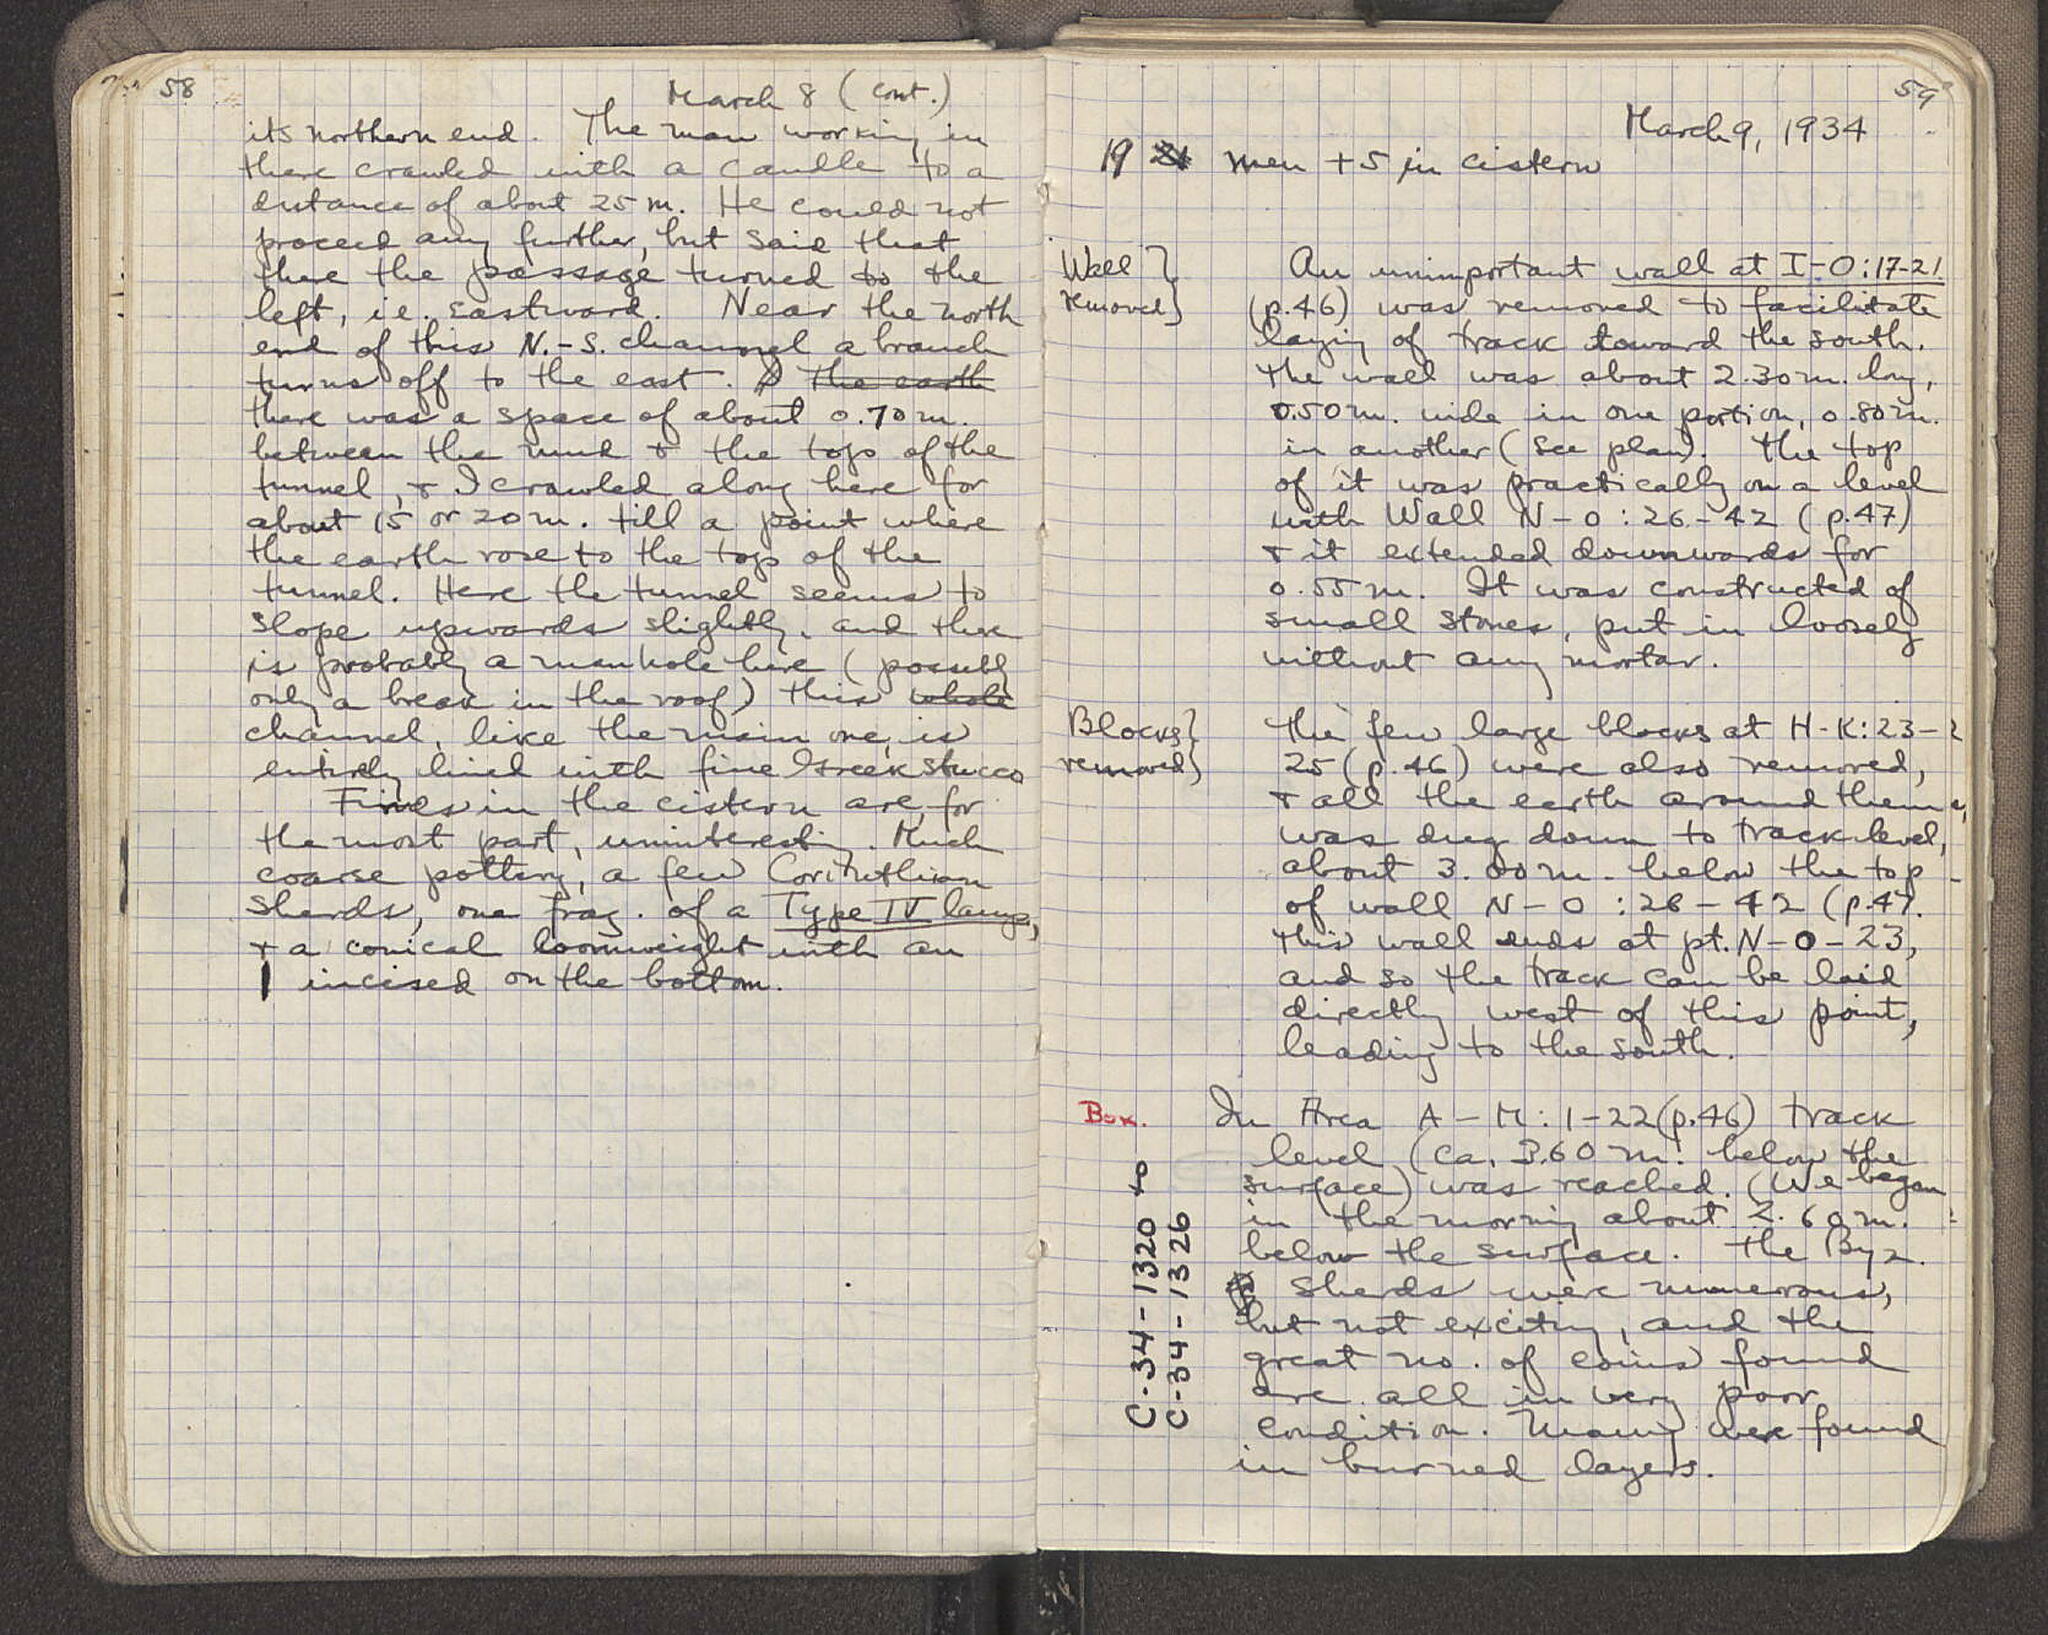 58
March 8 (cont.)
its northern end. The man working in
there crawled with a candle to a
distance of about 25 m. He could not
proceed any further, but said that
there the passage turned to the
left, i.e. eastward. Near the north
end of this N.-S. channel a branch
turns off to the east. The earth
there was a space of about 0.70 m.
between the mud + the top of the
tunnel, + I crawled along here for
about 15 or 20 m. till a point where
the earth rose to the top of the
tunnel. Here the tunnel seems to
slope upwards slightly, and there
is probably a manhole here (possibly
only a break in the roof) this whole
channel, like the main one, is
entirely lined with fine Greek stucco
Finds in the cistern are, for
the most part, uninteresting. Much
coarse pottery, a few Corinthian
sherds, one frag. of a Type IV lamp,
+ a conical loomweight with an
| incised on the bottom.
59
March 9, 1934
19 21 men + 5 in cistern
Wall }
removed }
An unimportant wall at I-O:17-21
(p.46) was removed to facilitate
laying of track toward the south.
The wall was about 2.30 m. long,
0.50 m. wide in one portion, 0.80 m.
in another (see plan). The top
of it was practically on a level
with Wall N-O:26-42 (p.47)
+ it extended downwards for
0.55 m. It was constructed of
small stones, put in loosely
without any mortar.
Blocks }
removed }
The few large blocks at H-K:23-
25 (p.46) were also removed,
+ all the earth around them
was dug down to track level,
about 3.00 m. below the top
of wall N-O:26-42 (p.47.
This wall ends at pt. N-O-23,
and so the track can be laid
directly west of this point,
leading to the south.
Box.
C-34-1320 to
C-34-1326
In Area A-M:1-22 (p.46) track
level (ca. 3.60 m. below the
surface) was reached. (We began
in the morning about 2.60 m.
below the surface. The Byz.
sherds were numerous,
but not exciting, and the
great no. of coins found
are all in very poor
condition. Many were found
in burned layers.